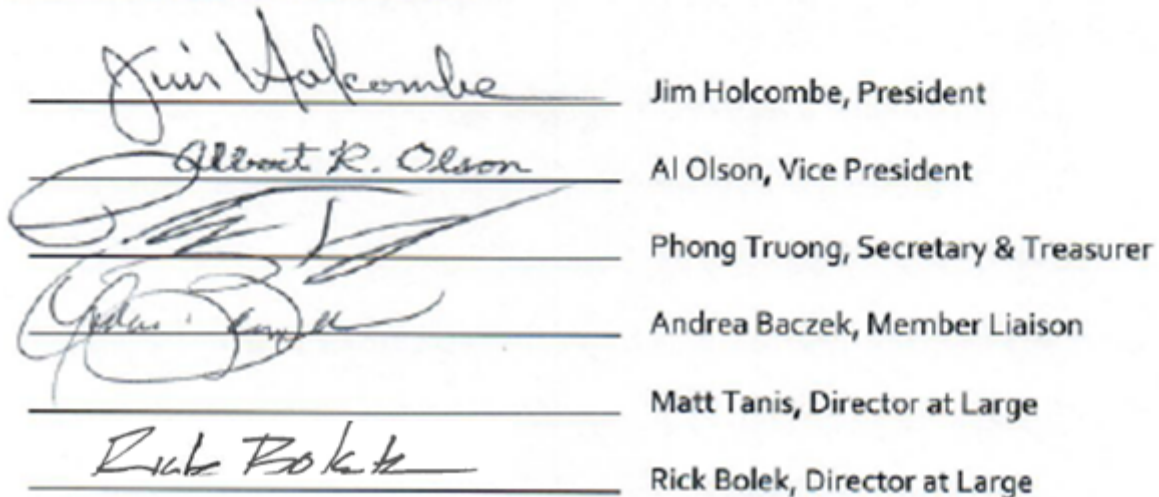 Jim Holcombe Jim Holcombe, President
Albert R. Olson Al Olson, Vice President
Phong Truong, Secretary & Treasurer
Andrea Baczek, Member Liaison
Matt Tanis, Director at Large
Rick Bolek Rick Bolek, Director at Large